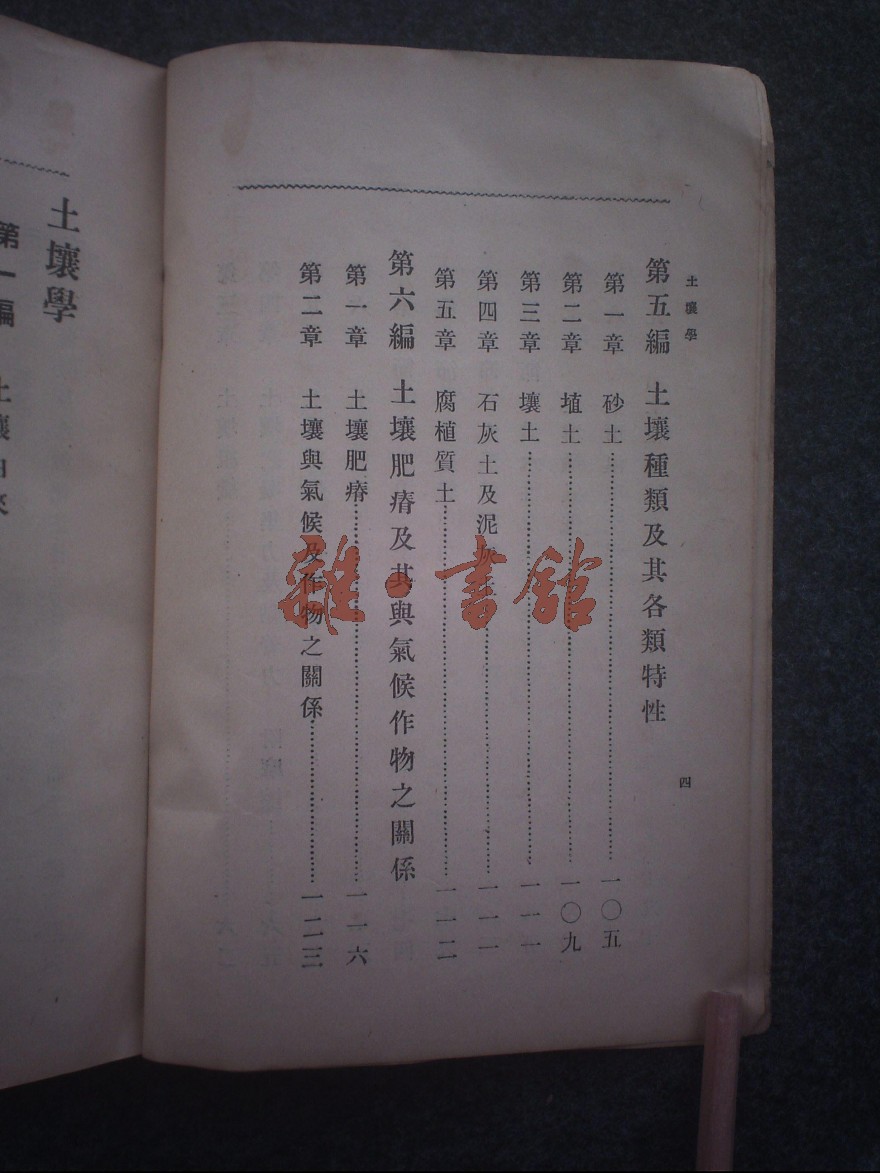 土壤學
四
第五編 土壤種類及其各類特性
第一章 砂土……一〇五
第二章 埴土……一〇九
第三章 壤土……一一一
第四章 石灰土及泥灰……一一一
第五章 腐植質土……一一二
第六編 土壤肥瘠及其與氣候作物之關係
第一章 土壤肥瘠……一一六
第二章 土壤與氣候及作物之關係……一二三
土壤學
第一編 土壤由來
雜·書館